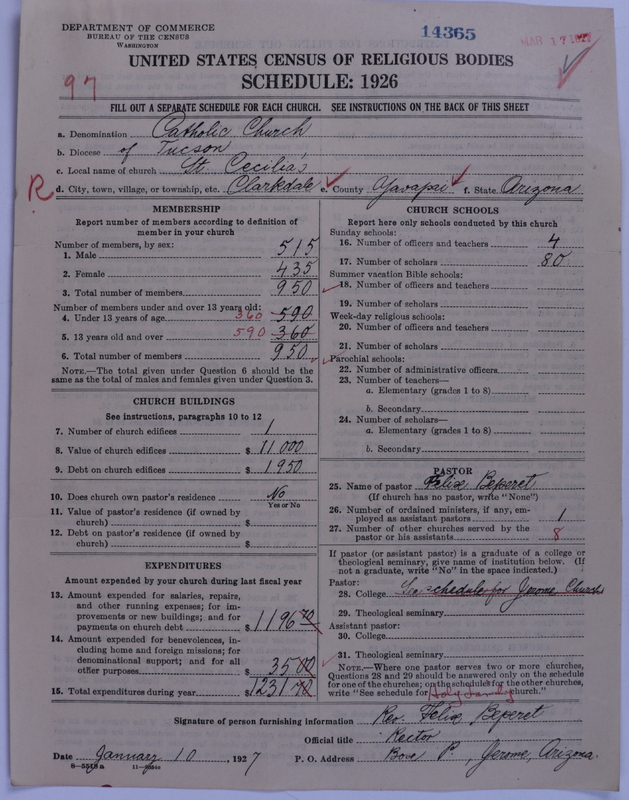 DEPARTMENT OF COMMERCE
BUREAU OF THE CENSUS
WASHINGTON
14365
MAR 17 1927
UNITED STATES CENSUS OF RELIGIOUS BODIES
97
SCHEDULE: 1926
FILL OUT A SEPARATE SCHEDULE FOR EACH CHURCH. SEE INSTRUCTIONS ON THE BACK OF THIS SHEET
a. Denomination Catholic Church
b. Diocese of Tucson
c. Local name of church St. Cecilia's
R d. City, town, village, or township, etc. Clarkdale e. County Yavapai f. State Arizona
MEMBERSHIP
Report number of members according to definition of
member in your church
Number of members, by sex:
1. Male 515
2. Female 435
3. Total number of members 950
Number of members under and over 13 years old:
4. Under 13 years of age 360 590
5. 13 years old and over 590 360
6. Total number of members 950
NOTE.—The total given under Question 6 should be
same as the total of males and females given under Question 3.
CHURCH BUILDINGS
See instructions, paragraphs 10 to 12
7. Number of church edifices 1
8. Value of church edifices $ 11 000
9. Debt on church edifices $ 1950
10. Does church own pastor's residence No
Yes or No
11. Value of pastor's residence (if owned by
church) $
12. Debt on pastor's residence (if owned by
church) $
EXPENDITURES
Amount expended by your church during last fiscal year
13. Amount expended for salaries, repairs,
and other running expenses; for im-
provements or new buildings; and for
payments on church debt $ 1196 70
14. Amount expended for benevolences, in-
cluding home and foreign missions; for
denominational support; and for all
other purposes $ 35 00
15. Total expenditures during year $ 1231 70
CHURCH SCHOOLS
Report here only schools conducted by this church
Sunday schools:
16. Number of officers and teachers 4
17. Number of scholars 80
Summer vacation Bible schools:
18. Number of officers and teachers
19. Number of scholars
Week-day religious schools:
20. Number of officers and teachers
21. Number of scholars
Parochial schools:
22. Number of administrative officers
23. Number of teachers—
a. Elementary (grades 1 to 8)
b. Secondary
24. Number of scholars—
a. Elementary (grades 1 to 8)
b. Secondary
PASTOR
25. Name of pastor Felix Beperet
(If church has no pastor, write "None")
26. Number of ordained ministers, if any, em-
ployed as assistant pastors 1
27. Number of other churches served by the
pastor or his assistants 8
If pastor (or assistant pastor) is a graduate of a college or
theological seminary, give name of institution below. (If
not a graduate, write "No" in the space indicated.)
Pastor:
28. College See schedule for Jerome Church
29. Theological seminary
Assistant pastor:
30. College
31. Theological seminary
NOTE.—Where one pastor serves two or more churches,
Questions 28 and 29 should be answered only on the schedule
for one of the churches; on the schedules for the other churches,
write "See schedule for Holy Family church."
Signature of person furnishing information Rev. Felix Beperet
Official title Rector
Date January 10, 1927 P. O. Address Box P, Jerome, Arizona.